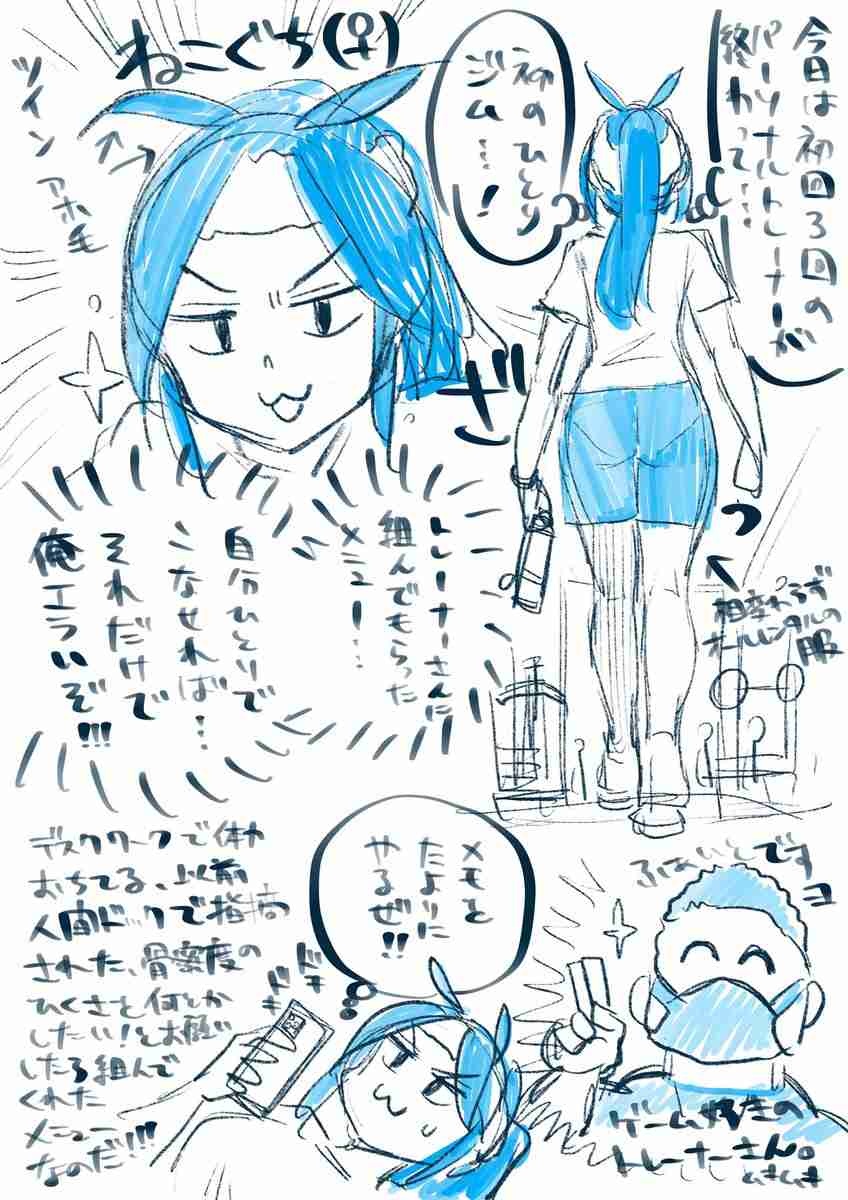 今日は初回3回の
パーソナルトレーナーが
終わって…
初のひとり
ジム…!
ねこぐち(♀)
ツインアホ毛
ざっ
相変わらず
オールレンタルの
服
トレーナーさんに
組んでもらった
メニュー…
自分ひとりで
こなせれば…
それだけで
俺エライぞ!!!
ふぁいとですヨ
ゲーム好きの
トレーナーさん。
ムキムキ
メモを
たよりに
やるぜ!!
ドキ
ドキ
デスクワークで体力
おちてる、以前
人間ドックで指摘
された、骨密度の
ひくさを何とか
したい!とお願い
したら組んで
くれた
メニュー
なのだ!!!